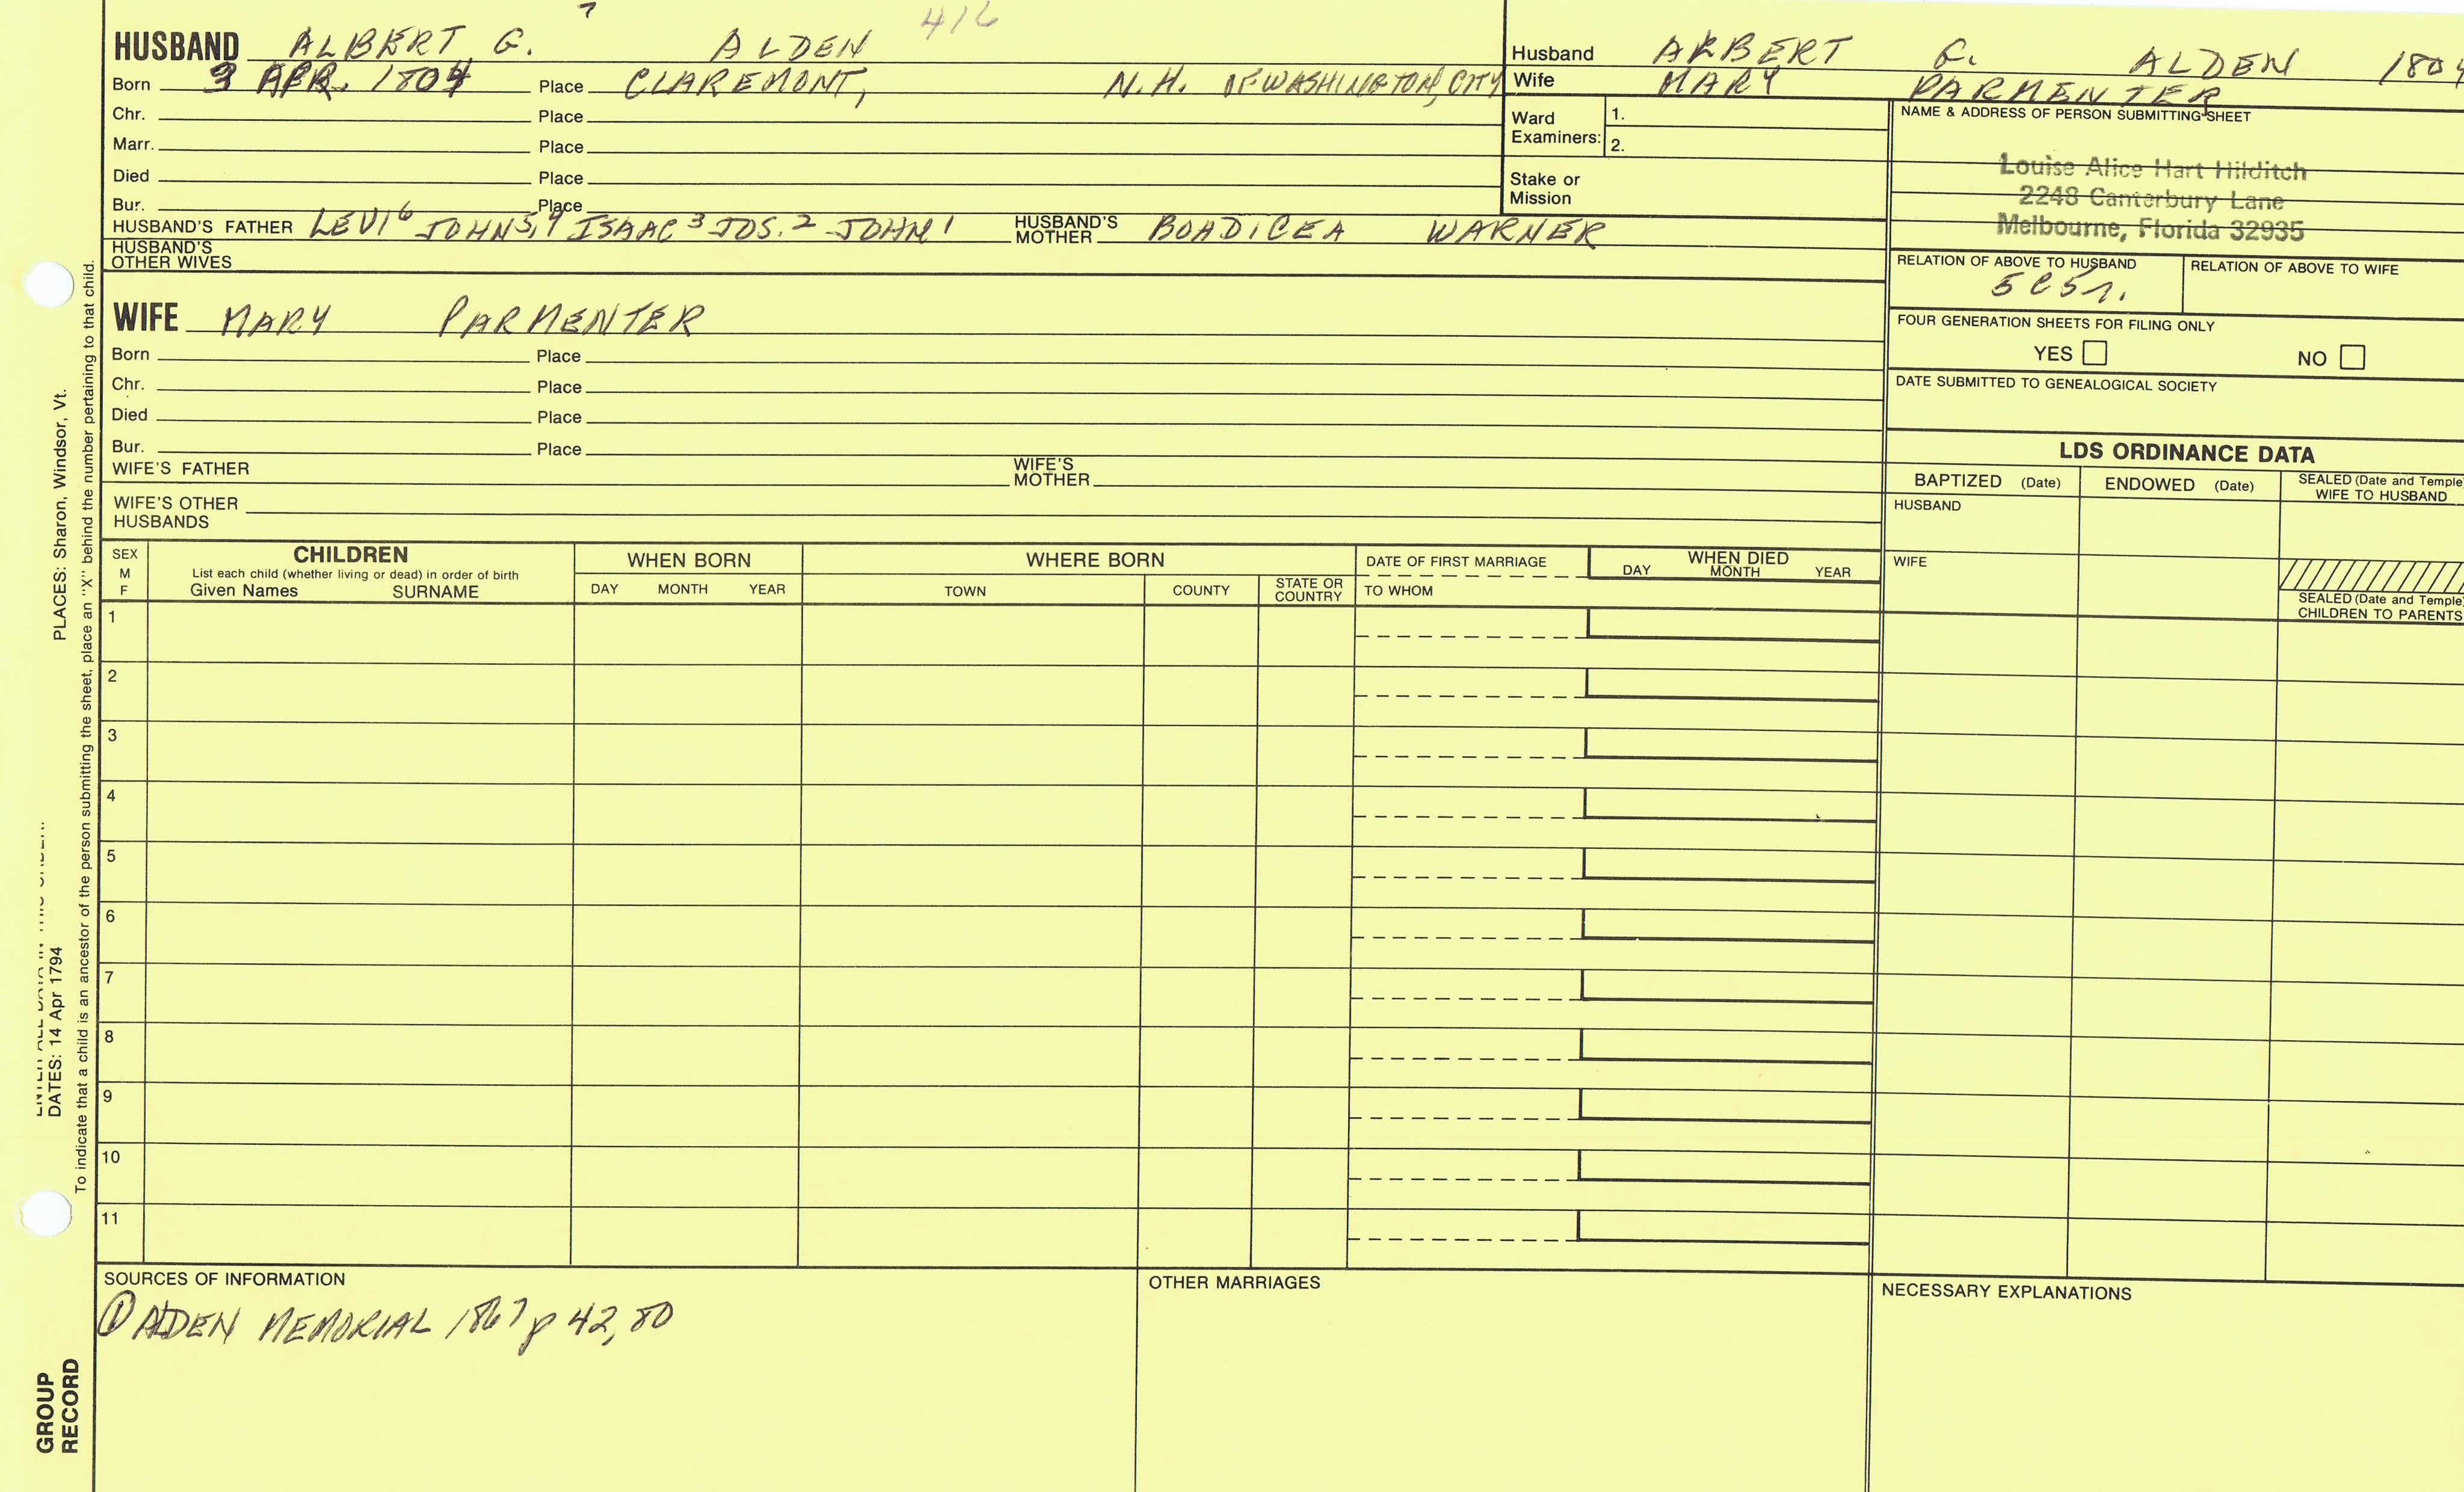 7
416
HUSBAND ALBERT G. ALDEN
Born 3 APR. 1804 Place CLAREMONT, N.H. OF WASHINGTON, CITY
Chr. Place
Marr. Place
Died Place
Bur. Place
HUSBAND'S FATHER LEVI 6 JOHN 5,4 ISAAC 3 JOS. 2 JOHN 1 HUSBAND'S MOTHER BOADICEA WARNER
HUSBAND'S OTHER WIVES
WIFE MARY PARMENTER
Born Place
Chr. Place
Died Place
Bur. Place
WIFE'S FATHER WIFE'S MOTHER
WIFE'S OTHER HUSBANDS
Husband ALBERT G. ALDEN 1804
Wife MARY PARMENTER
Ward Examiners: 1.
2.
Stake or Mission
NAME & ADDRESS OF PERSON SUBMITTING SHEET
Louise Alice Hart Hilditch
2248 Canterbury Lane
Melbourne, Florida 32935
RELATION OF ABOVE TO HUSBAND RELATION OF ABOVE TO WIFE
5C5r.
FOUR GENERATION SHEETS FOR FILING ONLY
YES NO
DATE SUBMITTED TO GENEALOGICAL SOCIETY
LDS ORDINANCE DATA
BAPTIZED (Date) ENDOWED (Date) SEALED (Date and Temple) WIFE TO HUSBAND
HUSBAND
WIFE
SEALED (Date and Temple) CHILDREN TO PARENTS
SEX M F
CHILDREN
List each child (whether living or dead) in order of birth
Given Names SURNAME
WHEN BORN
DAY MONTH YEAR
WHERE BORN
TOWN COUNTY STATE OR COUNTRY
DATE OF FIRST MARRIAGE
TO WHOM
WHEN DIED
DAY MONTH YEAR
1
2
3
4
5
6
7
8
9
10
11
SOURCES OF INFORMATION
① ALDEN MEMORIAL 1867 p 42, 80
OTHER MARRIAGES
NECESSARY EXPLANATIONS
PLACES: Sharon, Windsor, Vt.
DATES: 14 Apr 1794
To indicate that a child is an ancestor of the person submitting the sheet, place an "X" behind the number pertaining to that child.
GROUP
RECORD